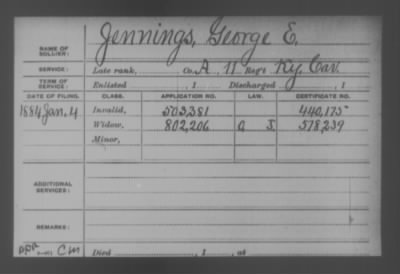 NAME OF SOLDIER: Jennings, George E.
SERVICE: Late rank, Co. A, 11 Reg't Ky. Cav.
TERM OF SERVICE: Enlisted , 1 Discharged , 1
DATE OF FILING. CLASS. APPLICATION NO. LAW. CERTIFICATE NO.
1884 Jan. 4 Invalid, 503,381 440,175
Widow, 802,206 G J. 578,239
Minor,
ADDITIONAL SERVICES:
REMARKS:
Cm Died , 1 , at